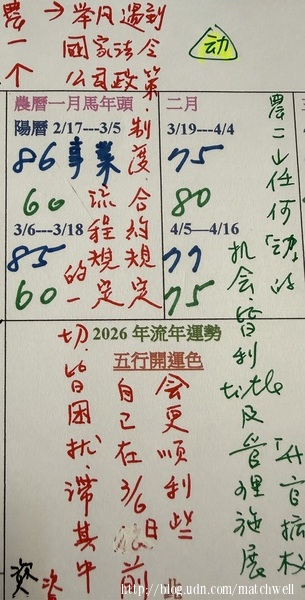 農一个
→ 举凡遇到
國家法令
公司政策.
动
農曆一月馬年頭
陽曆 2/17---3/5
86 事業
60
3/6---3/18
85
60
制度.合約規定
流程規定
的一
切.皆困扰.滯其中
二月
3/19---4/4
75
80
4/5---4/16
77
75
農二山任何「动」的
机会.皆利
title及管理施展
「升官擴权
2026 年流年運勢
五行開運色
自己在3/6日
前
會更順利些
此
资
資
http://blog.udn.com/matchwell